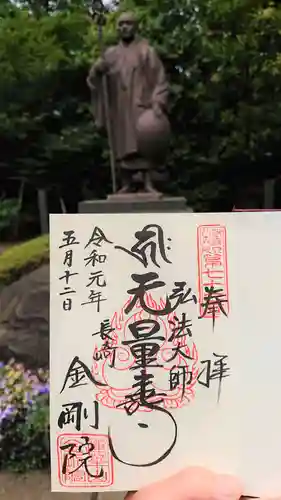 奉拝
弘法大師
無量寿
長崎
金剛院
令和元年
五月十二日